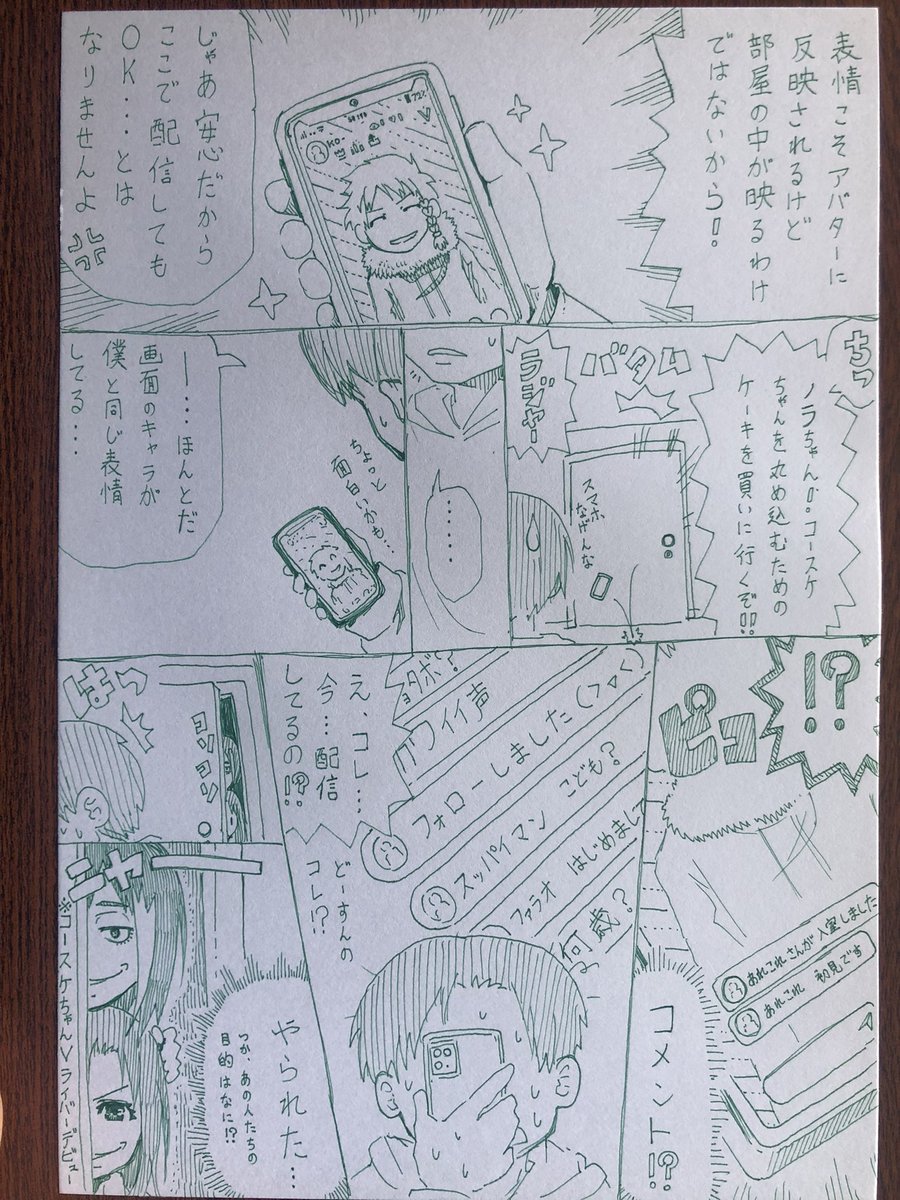 表情こそアバターに
反映されるけど
部屋の中が映るわけ
ではないから!
72%
KO-
じゃあ安心だから
ここで配信しても
OK...とは
なりませんよ
ちっ
ノラちゃん!!コースケ
ちゃんを丸め込むための
ケーキを買いに行くぞ!!
バタム
ラジャー
スマホ
なげんな
......
ちょっと
面白いかも...
ー...ほんとだ
画面のキャラが
僕と同じ表情
してる...
!?
ピコ
あれこれさんが入室しました
あれこれ 初見です
コメント!?
ョタボ?
カワイイ声
フォローしました
スッパイマン こども?
ファラオ はじめまして
何歳?
え、コレ...
今...配信
してるの!?
どーすんの
コレ!?
はっ
コソコソ
ニヤーーー
やられた...
つか、あの人たちの
目的はなに!?
※コースケちゃんVライバーデビュー